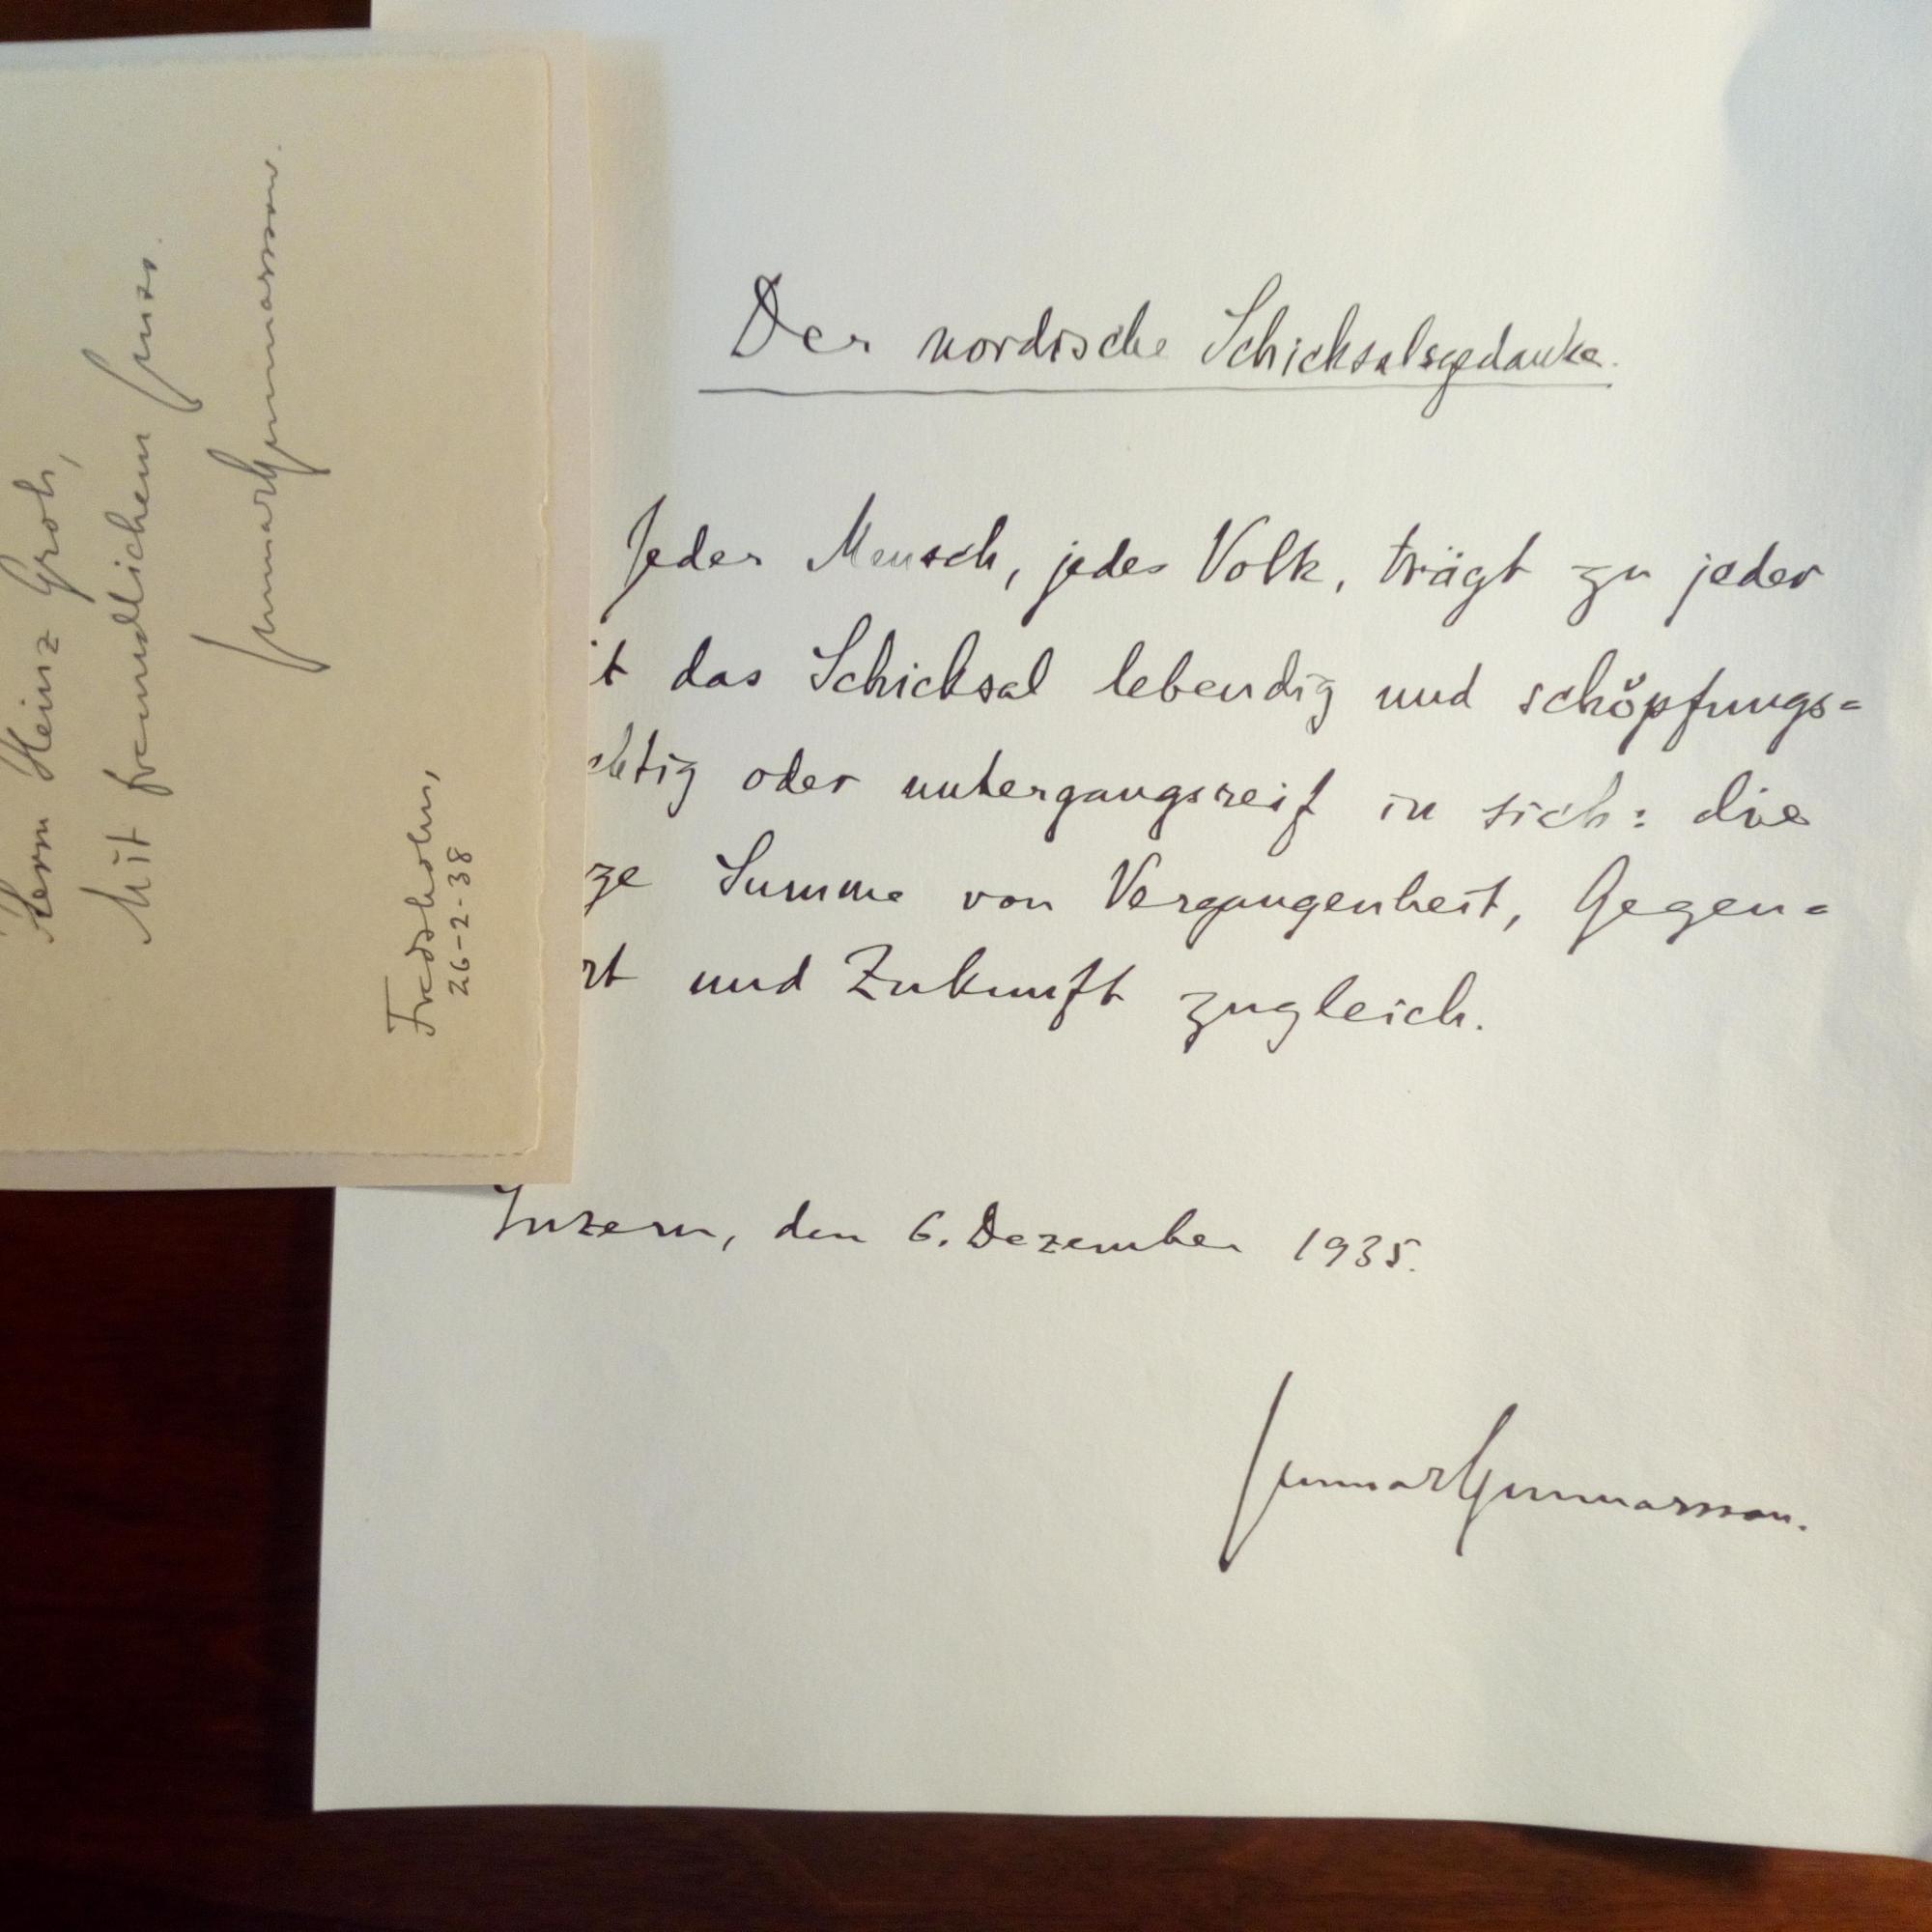 Herrn Heinz Groh,
Mit freundlichem Gruss.
Gunnar Gunnarsson.
Fredsholm,
26-2-38
Der nordische Schicksalsgedanke.
Jeder Mensch, jedes Volk, trägt zu jeder
it das Schicksal lebendig und schöpfungs=
chtig oder untergangsreif in sich: die
ze Summe von Vergangenheit, Gegen=
rt und Zukunft zugleich.
Luzern, den 6. Dezember 1935.
Gunnar Gunnarsson.